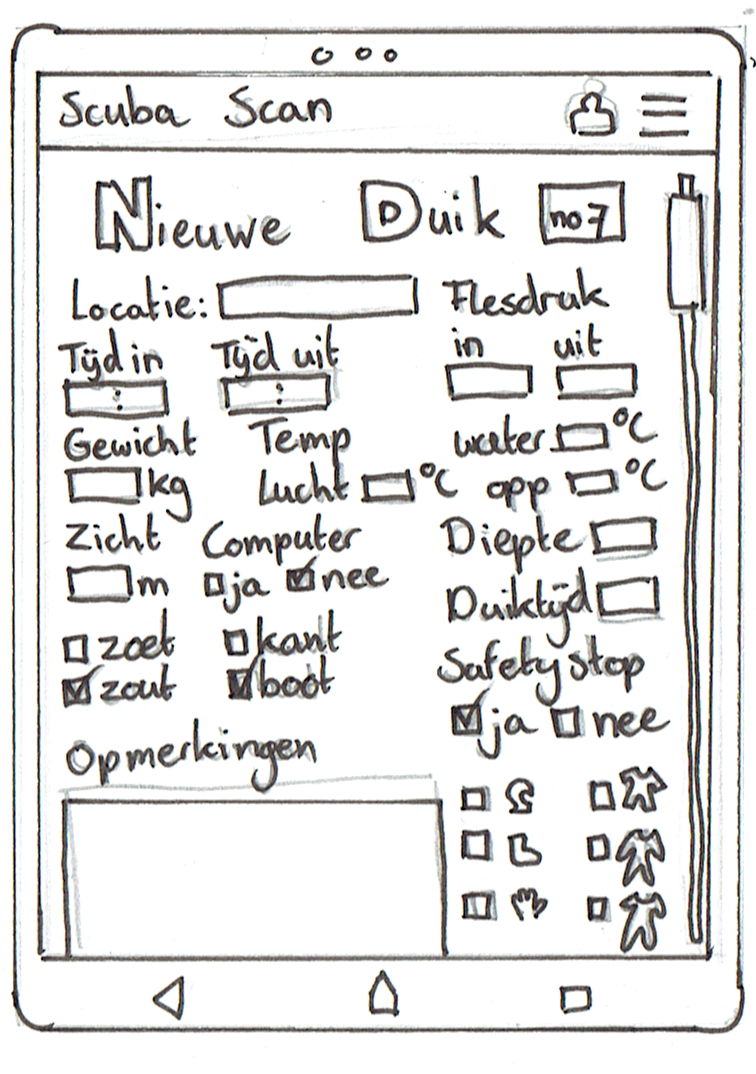 Scuba Scan
Nieuwe Duik no7
Locatie:
Flesdruk
Tijd in
Tijd uit
in
uit
:
:
Gewicht
Temp
water °C
kg
Lucht °C
opp °C
Zicht
Computer
Diepte
m
ja
nee
Duiktijd
zoet
kant
Safety stop
zout
boot
ja
nee
Opmerkingen